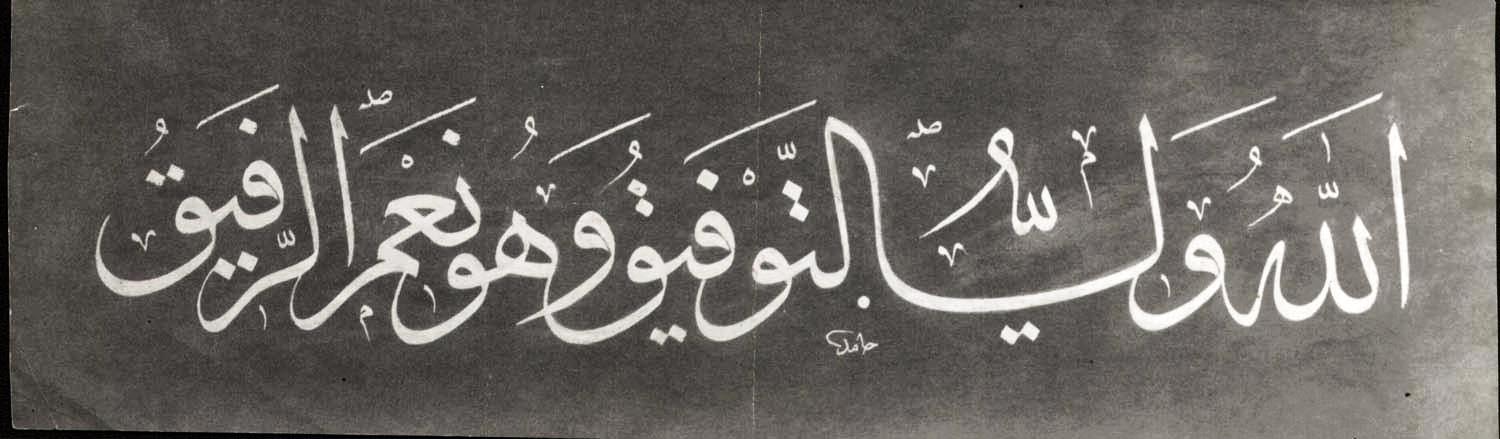 الله ولي التوفيق وهو نعم الرفيق
حامد